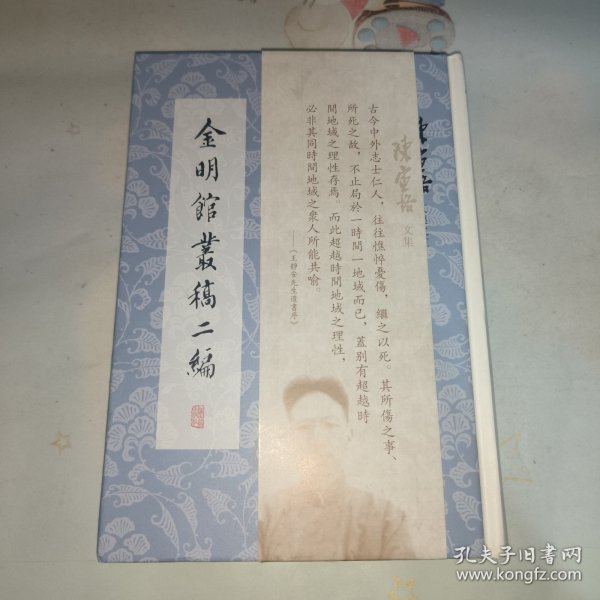 金明館叢稿二編
陳寅恪
文集
古今中外志士仁人，往往憔悴憂傷，繼之以死。其所傷之事、
所死之故，不止局於一時間一地域而已，蓋別有超越時
間地域之理性存焉。而此超越時間地域之理性，
必非其同時間地域之衆人所能共喻。
——《王靜安先生遺書序》
孔夫子旧书网
www.kongfz.com